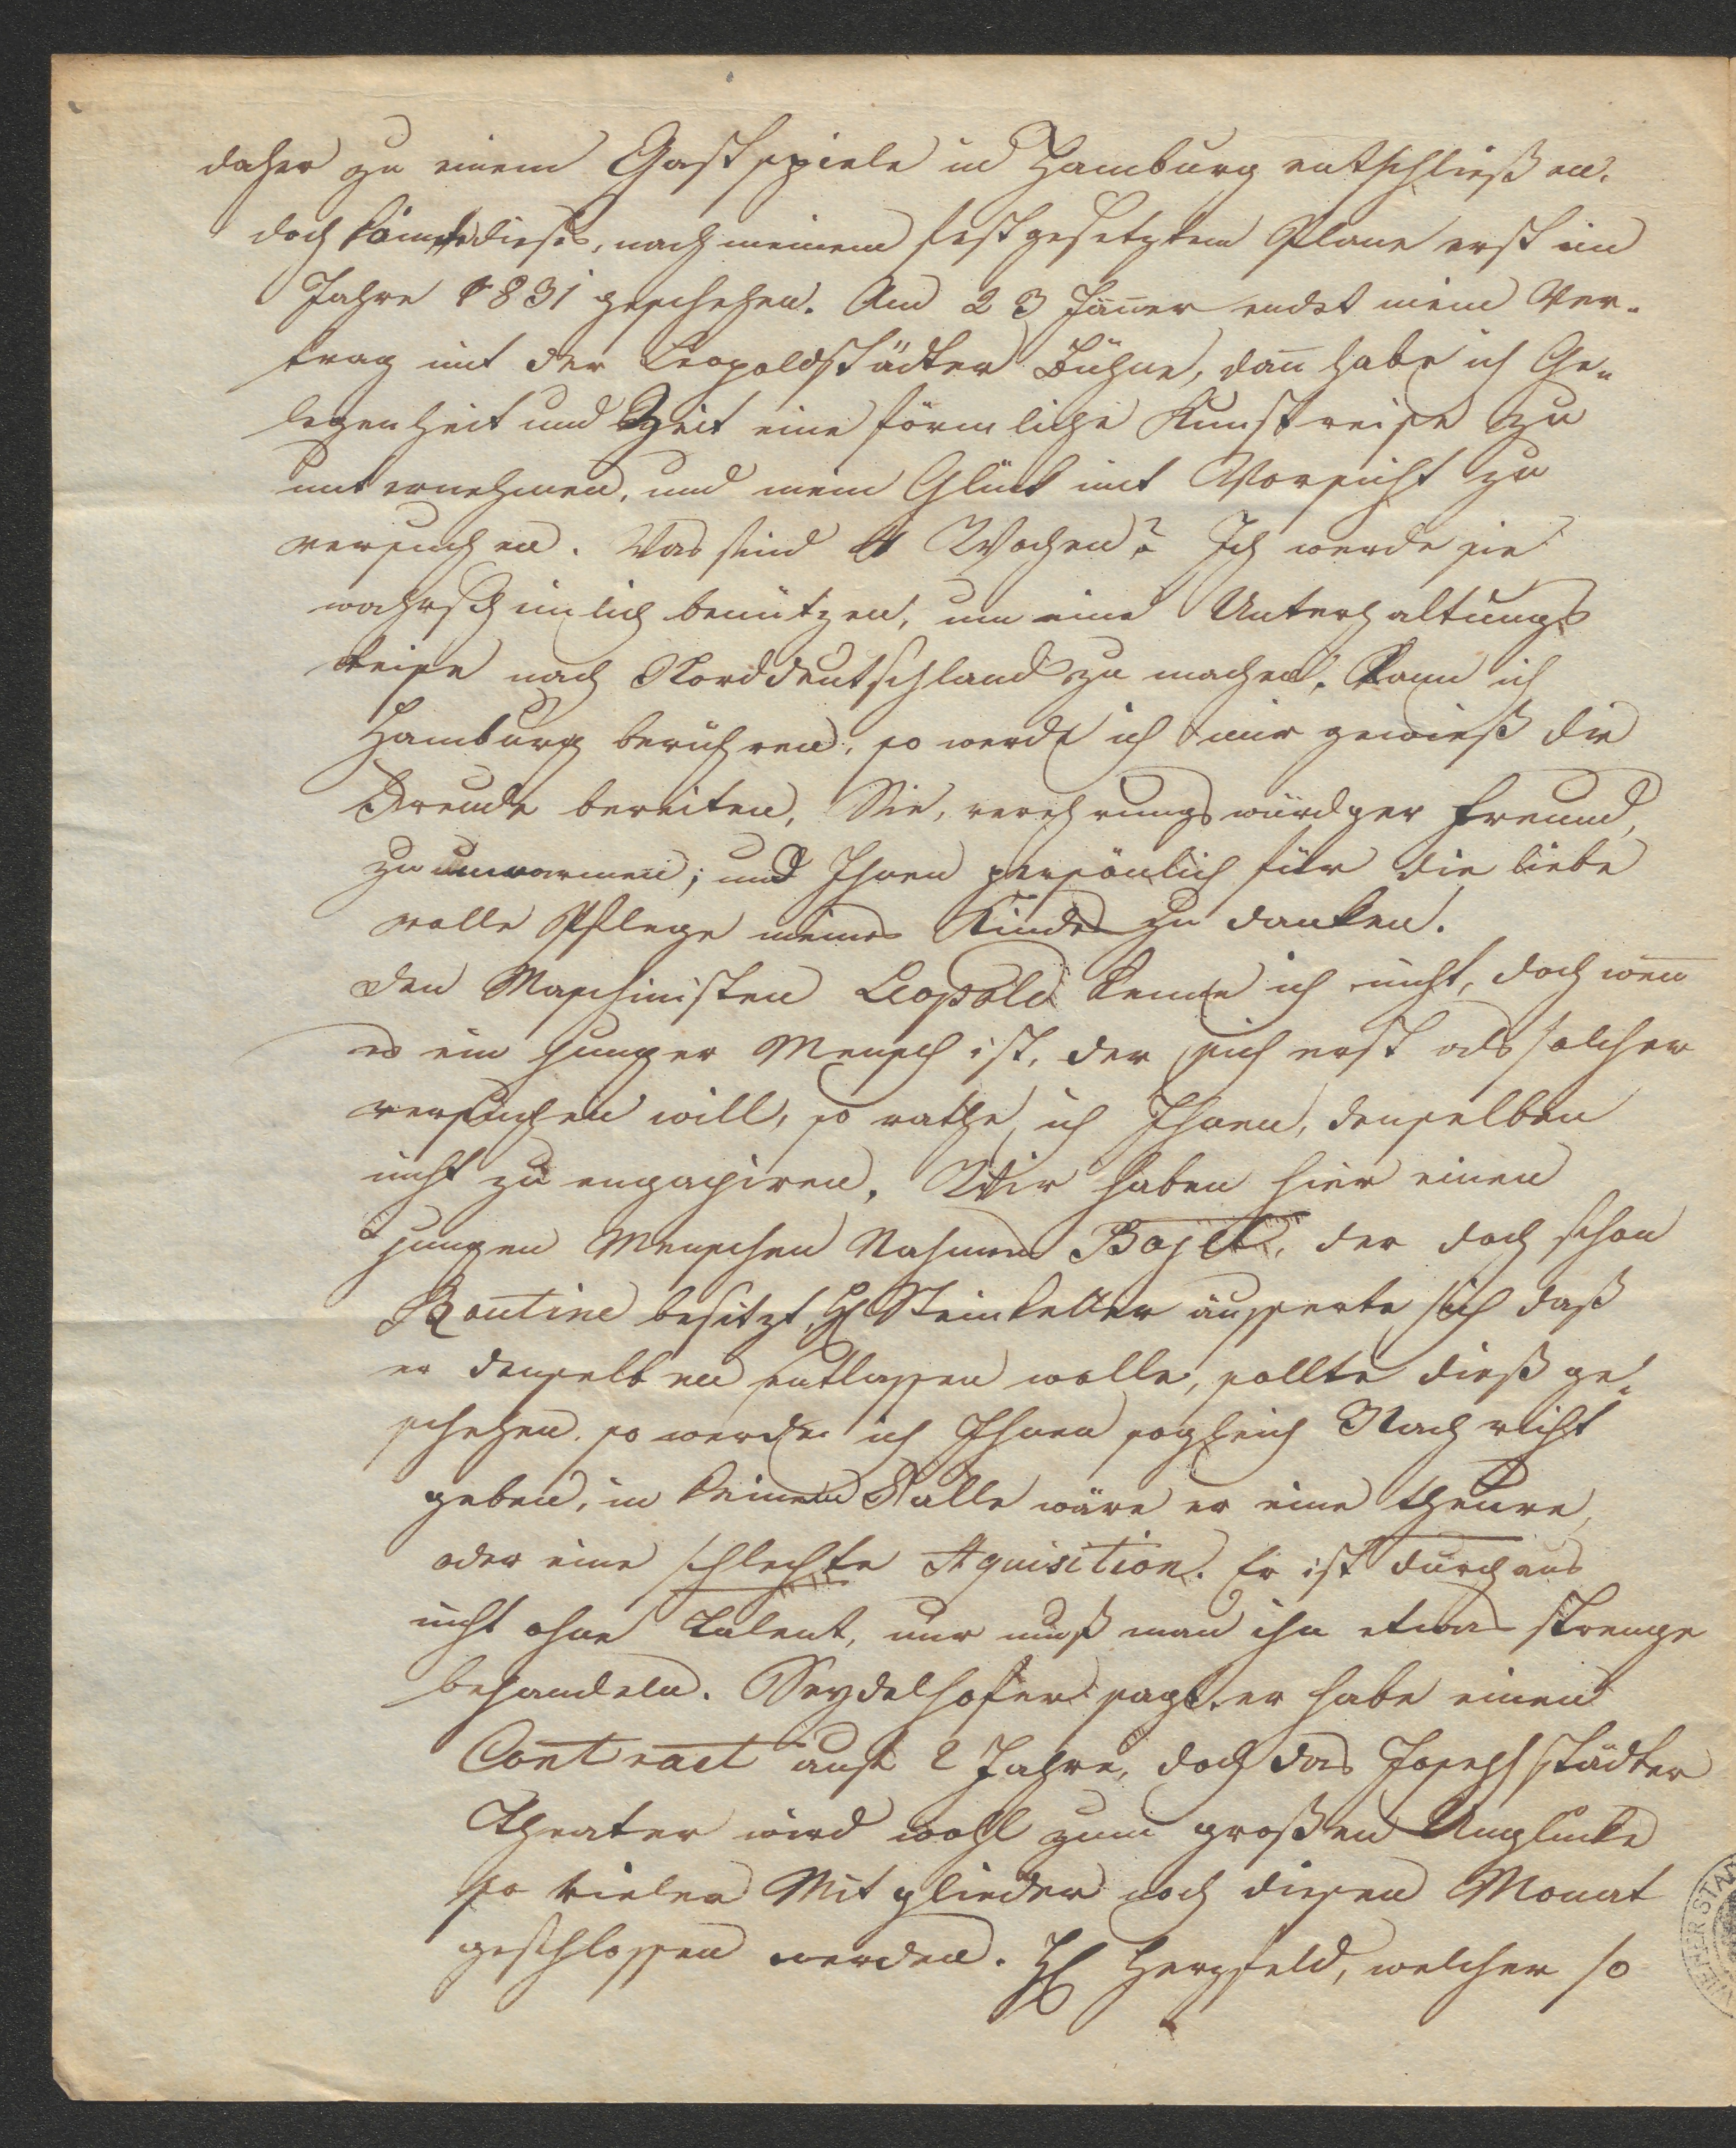 daher zu einem Gastspiele in Hamburg entschließen.
doch könnte dieses, nach meinem festgesetztem Plane erst im
Jahre 1831 geschehen. Am 23 Jäner endet mein Ver-
trag mit der Leopoldstädter Bühne, dan habe ich Ge-
legenheit und Zeit eine förmliche Kunstreise zu
unternehmen, und mein Glück mit Vorsicht zu
versuchen. Was sind 4 Wochen? Ich werde sie
wahrscheinlich benützen, um eine Unterhaltungs
Reise nach Norddeutschland zu machen. Kann ich
Hamburg berühren, so werde ich mir gewieß die
Freude bereiten, Sie, verehrungswürdger Freund,
zu umarmen; und Ihnen persönlich für die liebe
volle Pflege meines Kindes zu danken.
Den Maschinisten Leopold kenne ich nicht, doch wen
es ein junger Mensch ist, der sich erst als solcher
versuchen will, so rathe ich Ihnen, denselben
nicht zu engagiren. Wir haben hier einen
jungen Menschen Nahmens, der doch schon
Routine besitzt, H Steinkeller äusserte sich daß
er denselben entlassen wolle, sollte dieß ge-
schehen, so werde ich Ihnen sogleich Nachricht
geben, in keinem Falle wäre er eine theure,
oder eine schlechte Aquisition. Er ist durchaus
nicht ohne Talent, nur muß man ihn etwas strenge
behandeln. Seydelhofer sagt, er habe einen
Contract auf 2 Jahre, doch das Josephstädter
Theater wird wohl zum großen Unglücke
so vieler Mitglieder noch diesen Monat
geschlossen werden. H Herzfeld, welcher so
WIENER STA